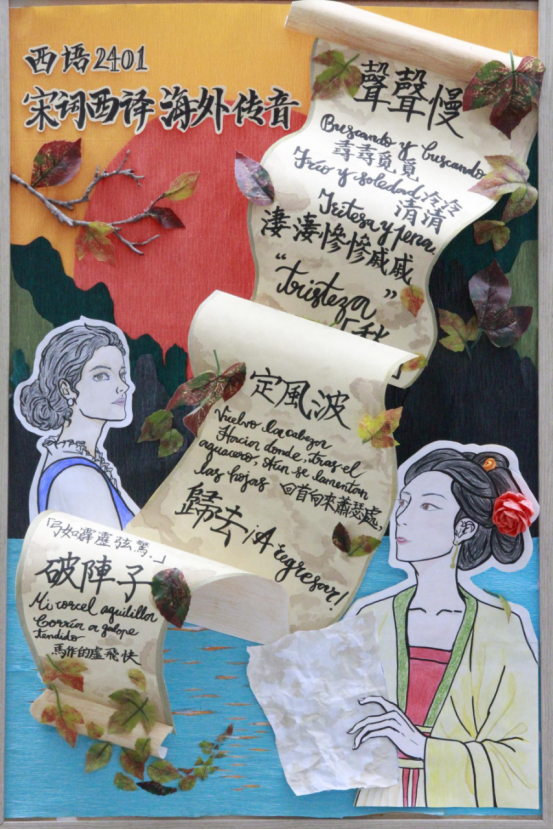 西语2401
宋词西译 海外传音
聲聲慢
Buscando y buscando
尋尋覓覓
Frío y soledad 冷冷
清清
Tristeza y pena.
淒淒慘慘戚戚
“tristeza”
「秋
定風波
Vuelvo la cabeza
Hacia donde, tras el
aguacero, Aún se lamentan
las hojas 回首向來蕭瑟處,
歸去 ¡A regresar!
「弓如霹靂弦驚.」
破陣子
Mi corcel aguidillon
Corría a galope
tendido
馬作的盧飛快